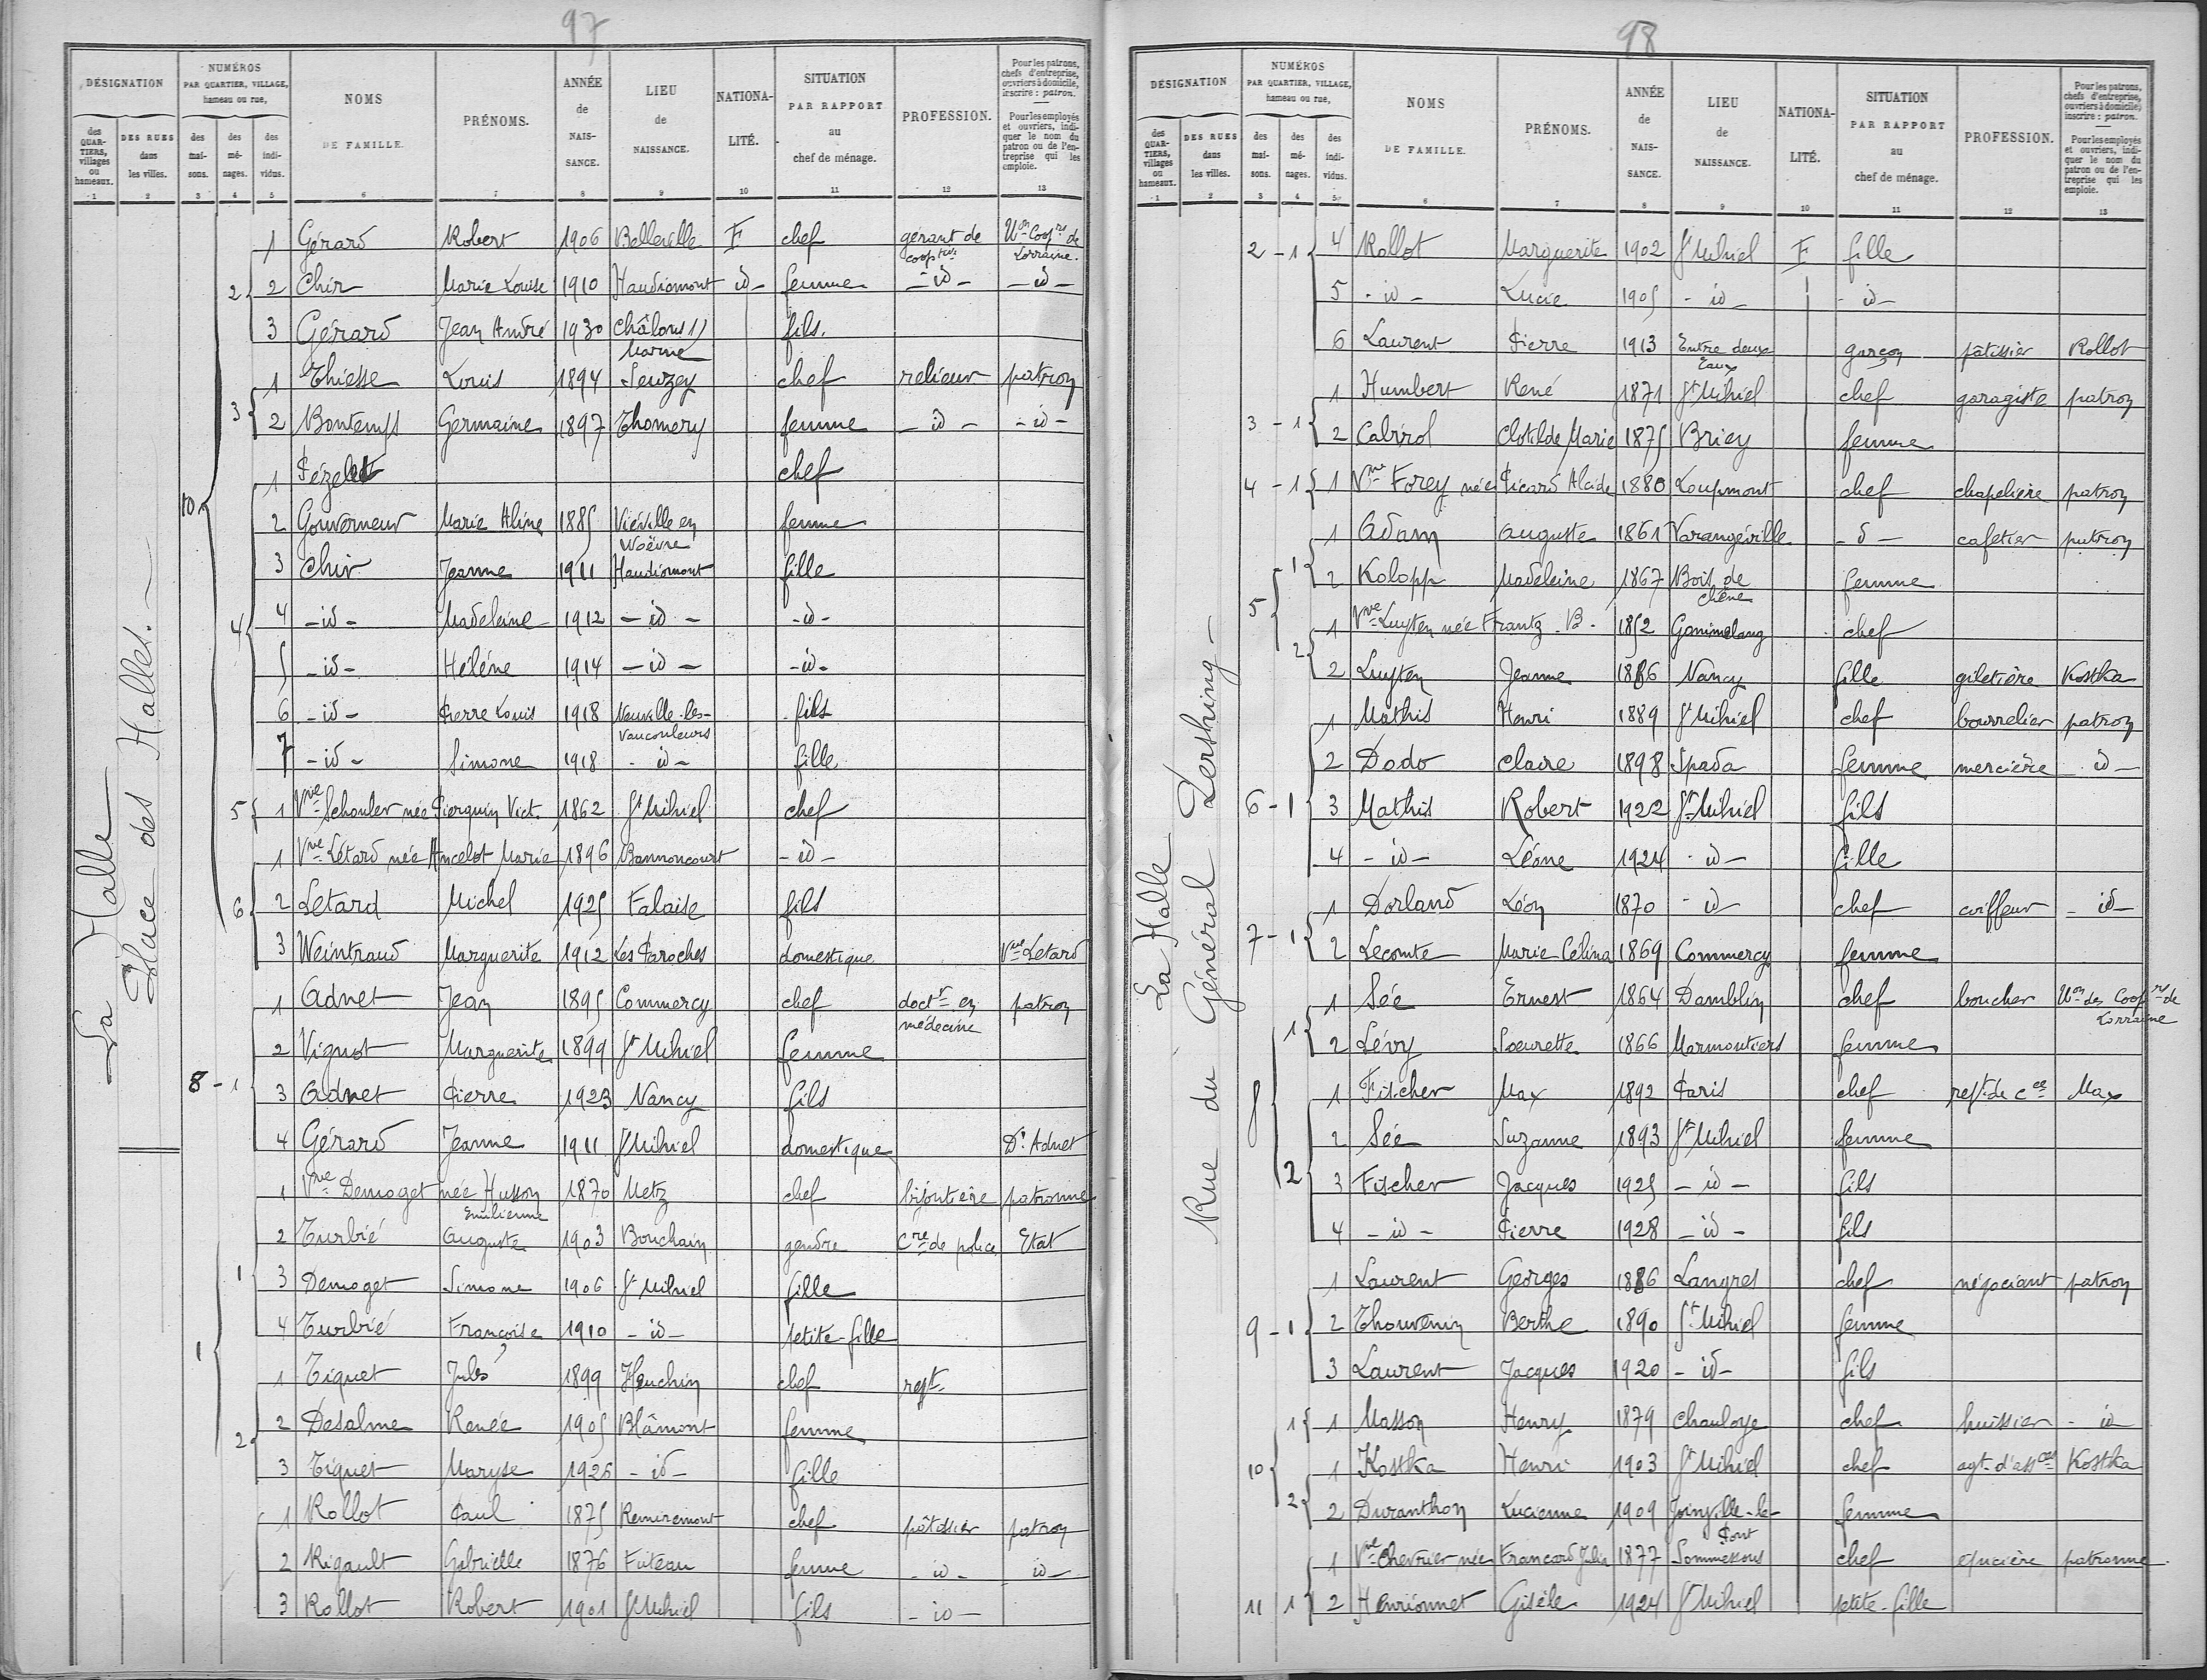 97
DÉSIGNATION | NUMÉROS PAR QUARTIER, VILLAGE, hameau ou rue, | NOMS DE FAMILLE. | PRÉNOMS. | ANNÉE de NAISSANCE. | LIEU de NAISSANCE. | NATIONALITÉ. | SITUATION PAR RAPPORT au chef de ménage. | PROFESSION. | Pour les patrons, chefs d'entreprise, ouvriers à domicile, inscrire : patron. — Pour les employés et ouvriers, indiquer le nom du patron ou de l'entreprise qui les emploie.
des QUARTIERS, villages ou hameaux. | DES RUES dans les villes. | des maisons. | des ménages. | des individus.
1 2 3 4 5 6 7 8 9 10 11 12 13
La Halle
Place des Halles.
10 2 1 Gérard Robert 1906 Belleville F chef gérant de coopve Uon Coopves de Lorraine.
2 Chir Marie Louise 1910 Haudiomont id femme id id
3 Gérard Jean André 1930 Châlons s/ Marne fils.
3 1 Thiesse Louis 1894 Seuzey chef relieur patron
2 Bontemps Germaine 1897 Thomery femme id id
4 1 Pézelet chef
2 Gouverneur Marie Aline 1885 Viéville en Woëvre femme
3 Chir Jeanne 1911 Haudiomont fille
4 id Madeleine 1912 id id
5 id Hélène 1914 id id
6 id Pierre Louis 1918 Neuville-les-Vaucouleurs fils
7 id Simone 1918 id fille
5 1 Vve Schouler née Pierquin Vict. 1862 St Mihiel chef
6 1 Vve Létard née Ancelot Marie 1896 Bannoncourt id
2 Letard Michel 1925 Falaise fils
3 Weintraud Marguerite 1912 Les Paroches domestique Vve Letard
8 - 1 1 Adnet Jean 1895 Commercy chef doctr en médecine patron
2 Vignot Marguerite 1899 St Mihiel femme
3 Adnet Pierre 1923 Nancy fils
4 Gérard Jeanne 1911 St Mihiel domestique Dr Adnet
1 1 1 Vve Demoget née Husson Emilienne 1870 Metz chef bijoutière patronne
2 Turbié Auguste 1903 Bouchain gendre Cre de police Etat
3 Demoget Simone 1906 St Mihiel fille
4 Turbié Françoise 1910 id petite-fille
2 1 Tiquet Jules 1899 Heuchin chef rept.
2 Desalme Renée 1905 Blâmont femme
3 Tiquet Maryse 1925 id fille
1 Rollot Paul 1875 Remiremont chef pâtissier patron
2 Rigault Gabrielle 1876 Futeau femme id id
3 Rollot Robert 1901 St Mihiel fils id
98
DÉSIGNATION | NUMÉROS PAR QUARTIER, VILLAGE, hameau ou rue, | NOMS DE FAMILLE. | PRÉNOMS. | ANNÉE de NAISSANCE. | LIEU de NAISSANCE. | NATIONALITÉ. | SITUATION PAR RAPPORT au chef de ménage. | PROFESSION. | Pour les patrons, chefs d'entreprise, ouvriers à domicile, inscrire : patron. — Pour les employés et ouvriers, indiquer le nom du patron ou de l'entreprise qui les emploie.
des QUARTIERS, villages ou hameaux. | DES RUES dans les villes. | des maisons. | des ménages. | des individus.
1 2 3 4 5 6 7 8 9 10 11 12 13
La Halle
Rue du Général Pershing
2 - 1 4 Rollot Marguerite 1902 St Mihiel F fille
5 id Lucie 1905 id id
6 Laurent Pierre 1913 Entre deux Eaux garçon pâtissier Rollot
3 - 1 1 Humbert René 1871 St Mihiel chef garagiste patron
2 Cabirol Clotilde Marie 1875 Briey femme
4 - 1 1 Vve Forey née Picard Alcide 1880 Loupmont chef chapelière patron
5 1 1 Adam Auguste 1861 Varangéville d cafetier patron
2 Kolopp Madeleine 1867 Bois de chêne femme
2 1 Vve Luyten née Frantz B. 1852 chef
2 Luyten Jeanne 1886 Nancy fille giletière Kostka
6 - 1 1 Mathis Henri 1889 St Mihiel chef bourrelier patron
2 Dodo Claire 1898 Spada femme mercière id
3 Mathis Robert 1922 St Mihiel fils
4 id Léone 1924 id fille
7 - 1 1 Dorland Léon 1870 id chef coiffeur id
2 Lecomte Marie Célina 1869 Commercy femme
8 1 1 Sée Ernest 1864 Damblin chef boucher Uon des Coopves de Lorraine
2 Lévy Soeurette 1866 Marmoutiers femme
2 1 Fischer Max 1892 Paris chef rept de cce Max
2 Sée Suzanne 1893 St Mihiel femme
3 Fischer Jacques 1925 id fils
4 id Pierre 1928 id fils
9 - 1 1 Laurent Georges 1886 Langres chef négociant patron
2 Thouvenin Berthe 1890 St Mihiel femme
3 Laurent Jacques 1920 id fils
10 1 1 Masson Henry 1879 Chauloye chef huissier id
2 1 Kostka Henri 1903 St Mihiel chef agt d'assces Kostka
2 Duranthon Lucienne 1909 Joinville-le-Pont femme
11 1 1 Vve Chevrier née Francard Julia 1877 Sommesous chef épicière patronne
2 Henrionnet Gisèle 1924 St Mihiel petite-fille